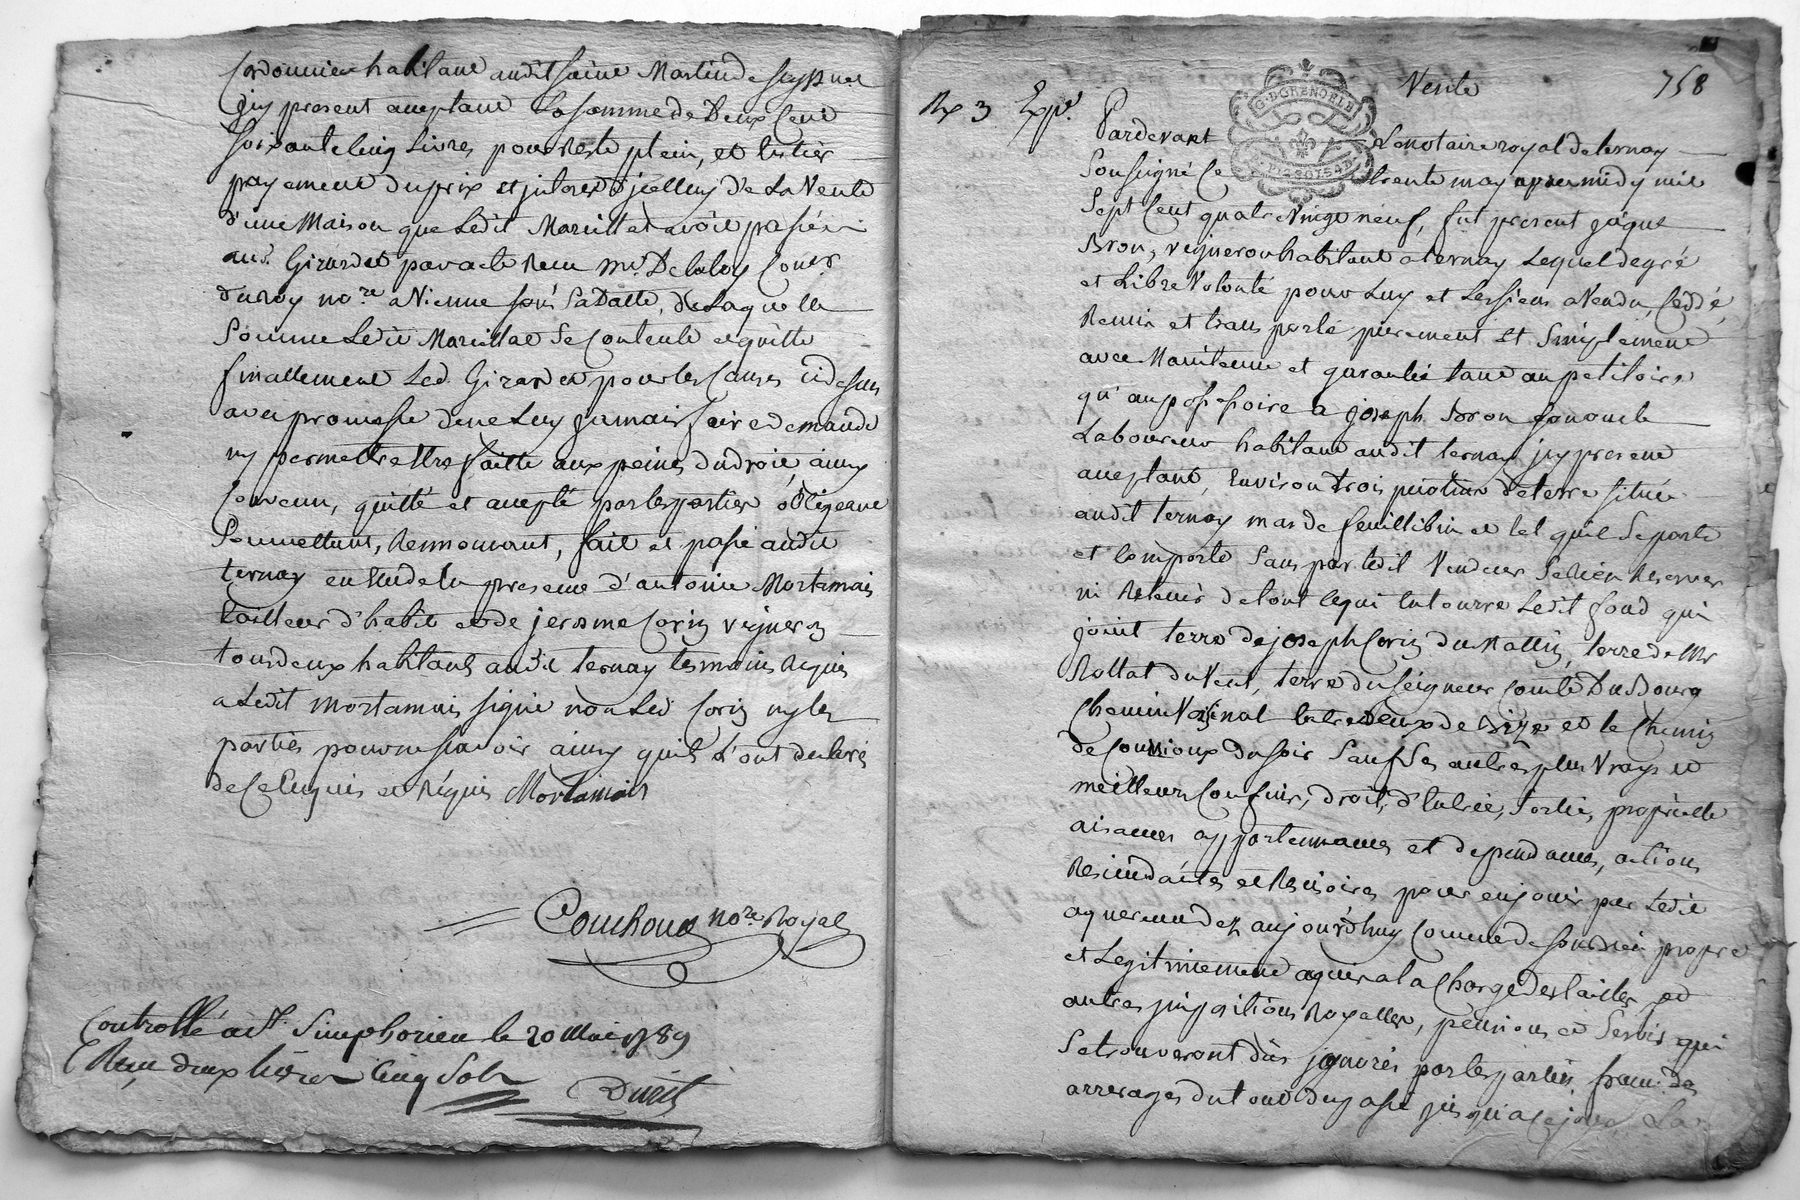 Cordonnier habitant audit Saint Martin de
jcy present aceptant La somme de Deux Cent
soixante Cinq Livres pour reste plein, et Entier
payement du prix et jnterest d'jcelluy de La Vente
d'une Maison que Ledit avoit passé
aud. Girardet par acte Recu Me. Delaloy Coner.
du Roy nore a Vienne sous sa Datte, de Laquelle
Somme Ledit se Contente et quitte
finallement Led. Girardet pour les Causes cidessus
avec promesse de ne Luy jamais faire demande
ny permettre Etre faitte aux peines du droit ainsy
Convenu, quitté et accepté par les parties obligeant
Soumettant, Rennoncant, fait et passé audit
ternay en Etude En presence d'antoine Mortamais
tailleur d'habit et de jerosme Corin vigneron
tous deux habitants audit ternay temoins Requis
a Ledit Mortamais signé non Led Corin ny les
parties pour ne scavoir ainsy quils L'ont declaré
de Ce Enquis et Requis Mortamais
Couchoud nore Royal
Controllé a St. Simphorien le 20 May 1789
Reçu deux livres Cinq Sols
Rx 3 Expé.
Vente
758
G. D GRENOBLE
Pardevant Le notaire royal de ternay
Soussigné Ce trente may apres midy mil
Sept Cent quatre Vingt neuf, fut present jâque
Bron, vigneron habitant a ternay Lequel de gré
et Libre Volonté pour Luy et Les siens a Vendu, Ceddé,
Remis et transporté purement et Simplement
avec Maintenue et garantie tant au petitoire
qu'au possessoire a joseph Bron son oncle
Laboureur habitant audit ternay jcy present
aceptant, Environ trois de terre située
audit ternay mas de et tel quil Se porte
et Comporte Sans par Ledit Vendeur Se Rien Reserver
ni Retenir de tout Ce qui Entourre Ledit fond qui
joint terre de joseph Corin du Mattin, terre de Mr
Rottat du Vent, terre du Seigneur Comte Du Bourg
Chemin Vicinal Entre Deux de Bize et le Chemin
de du soir Sauf Ses autres plus Vrays et
meilleurs Confins, droit, d'Entrée, Sortie, proprietté
aisances appartenances et dependances, actions
Rescindantes et Rescisoires pour en jouir par Ledit
aquereur dez aujourd'huy Comme de son Bien propre
et Legitimement aquis a la Charge des tailles et
autres jmpositions Royalles, pensions et Servis qui
Se trouveront dûs jgnorés par les parties, franc des
arrerages du tout du passé jusqu'a Ce jour La